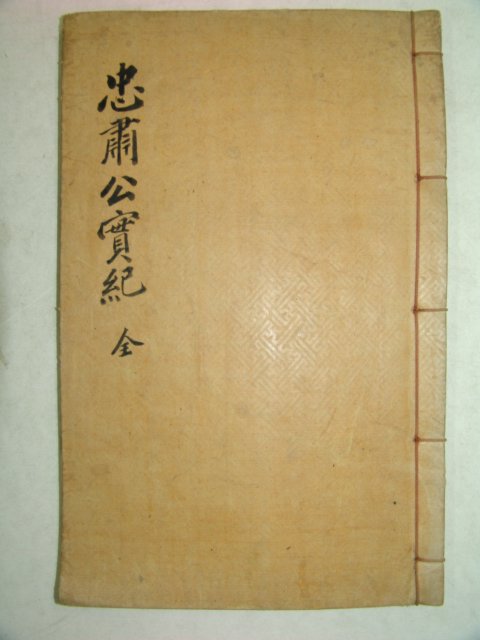 忠肅公實紀 全